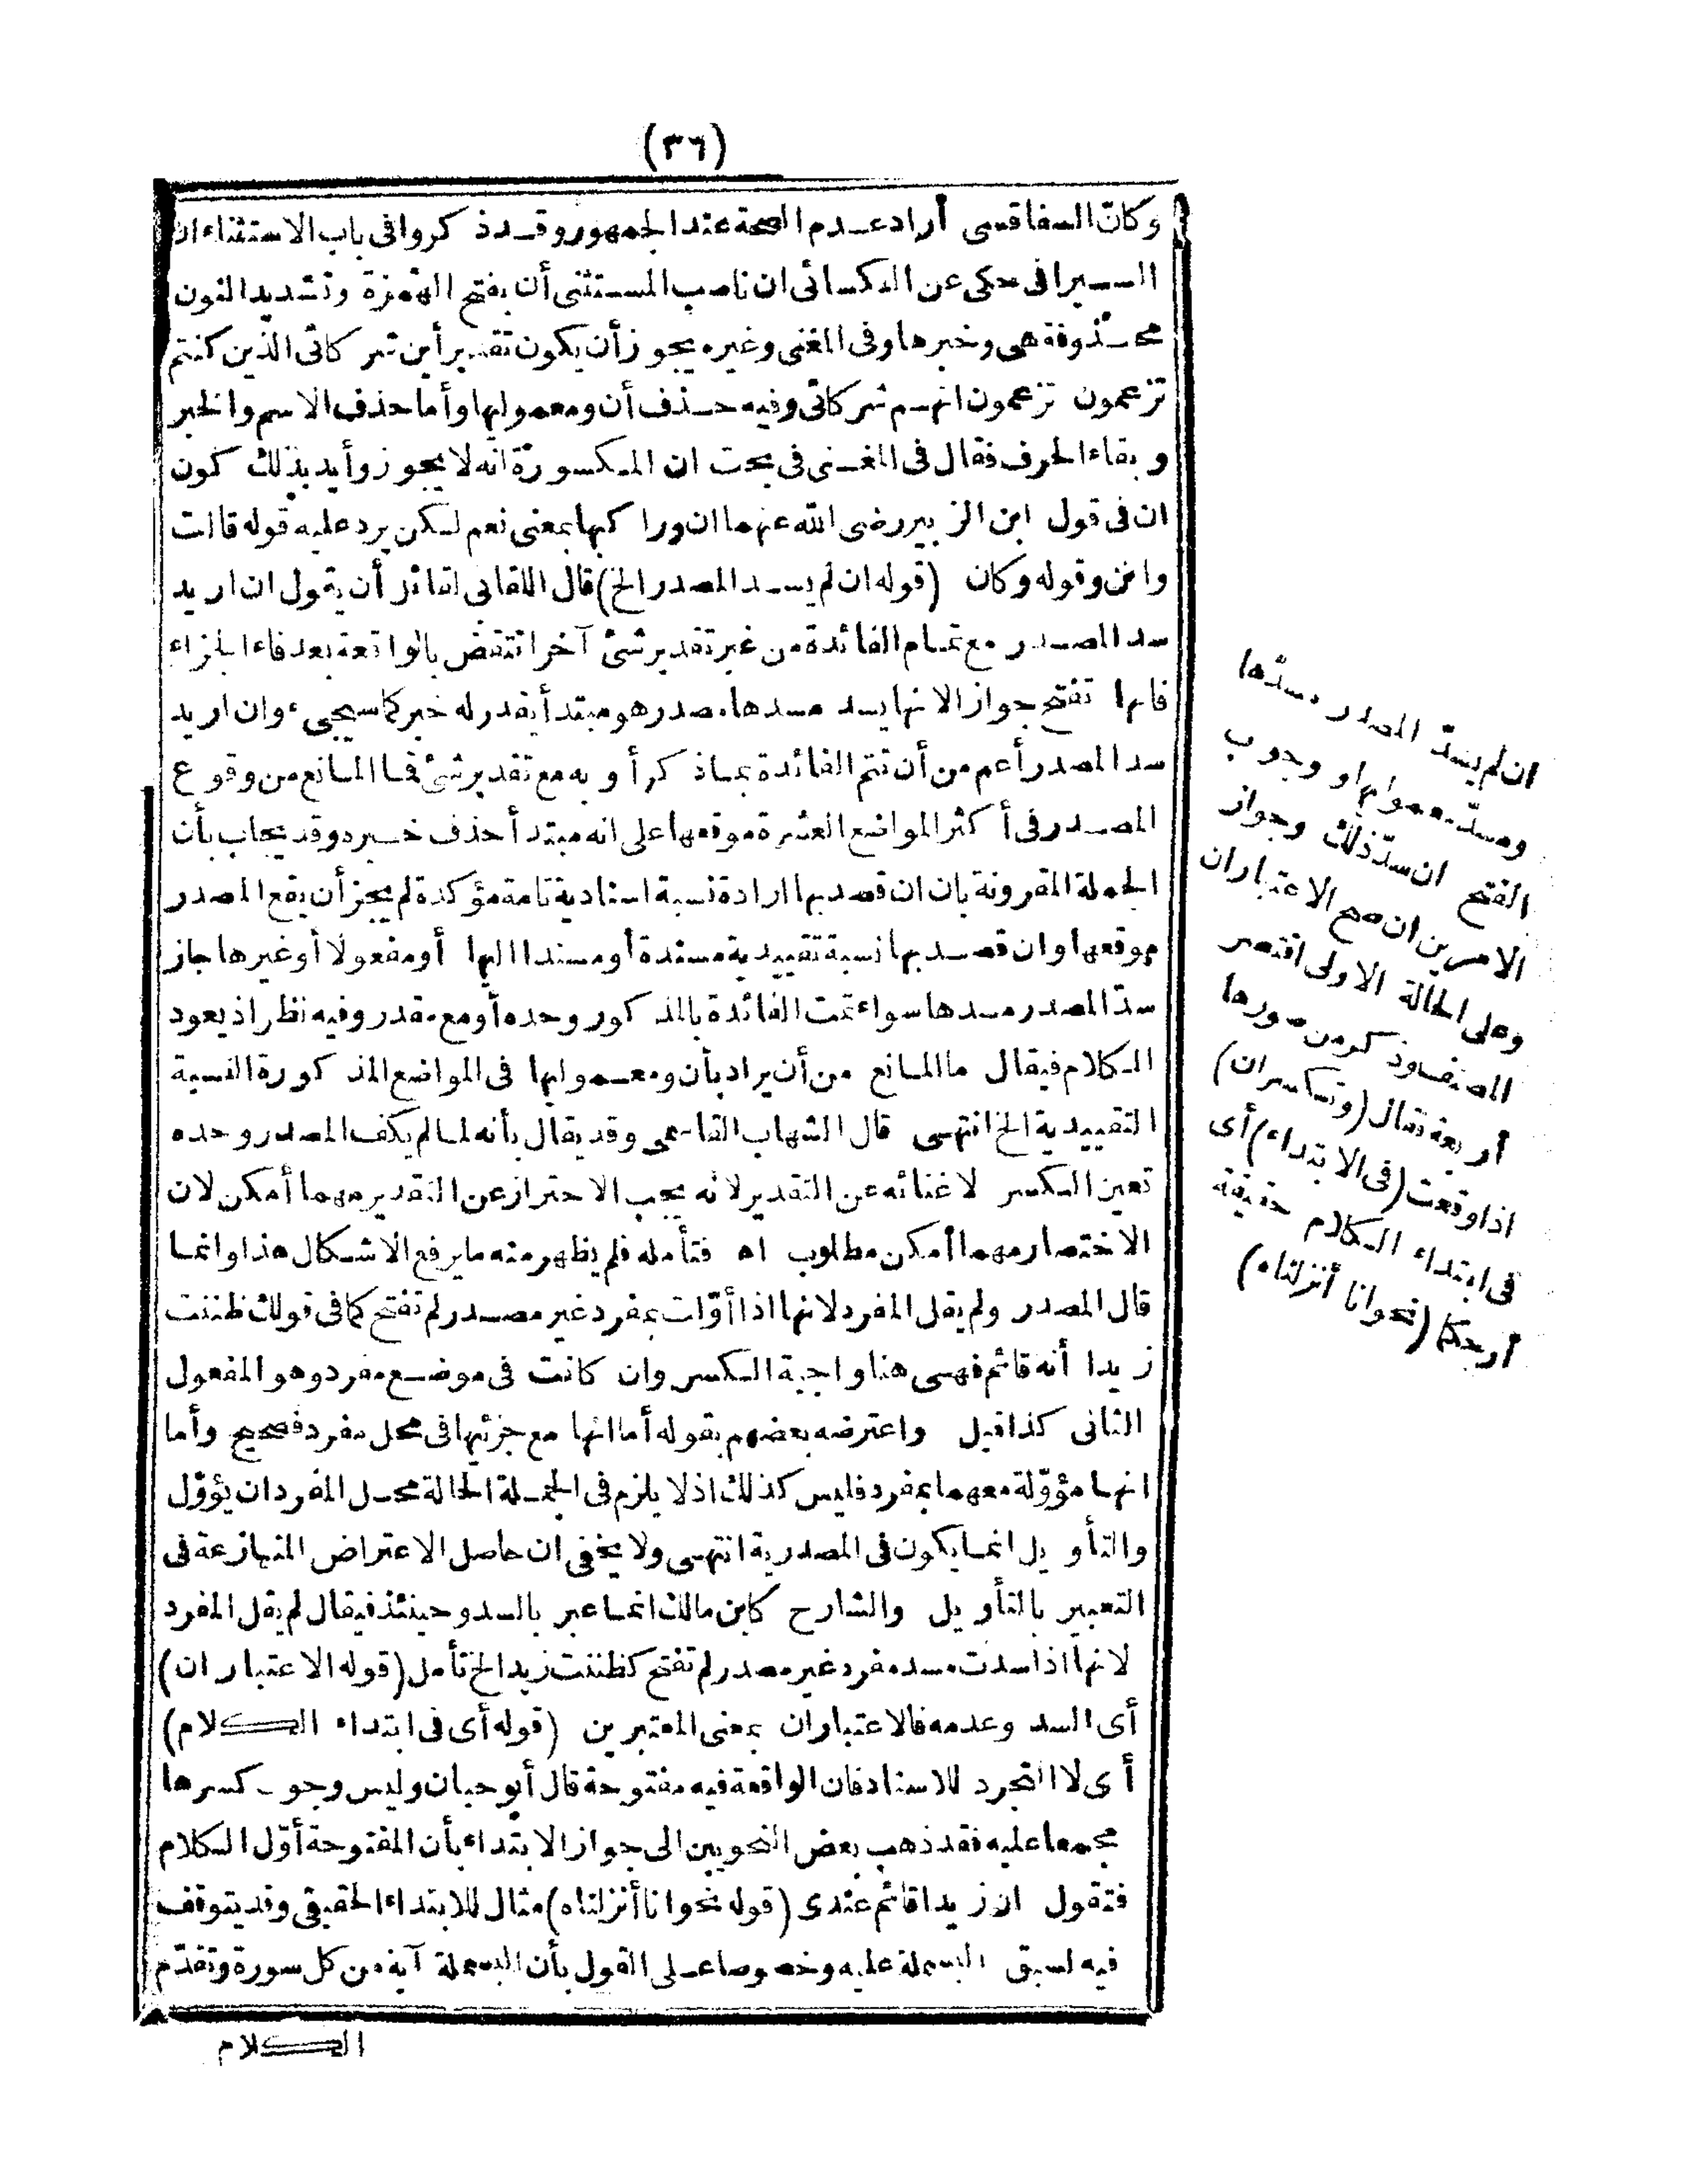 (٣٦)
وكان السفاقسي أراد عدم الصحة عند الجمهور وقد ذكروا في باب الاستثناء ان
السيرافي حكى عن الكسائي ان ناصب المستثنى أن بفتح الهمزة وتشديد النون
محذوفة هي وخبرها وفي المغني وغيره يجوز أن يكون تقدير أين شركائي الذين كنتم
تزعمون تزعمون انهم شركائي وفيه حذف أن ومعموليها وأما حذف الاسم والخبر
وبقاء الحرف فقال في المغني في بحث ان المكسورة انه لا يجوز وأيد بذلك كون
ان في قول ابن الزبير رضى الله عنهما ان وراكبها بمعنى نعم لكن يرد عليه قوله قالت
وانن وقوله وكان (قوله ان لم يسد المصدر الخ) قال اللقاني لقائل أن يقول ان اريد
سد المصدر مع تمام الفائدة من غير تقدير شئ آخر انتقض بالواقعة بعد فاء الجزاء
فانها تفتح جواز الانها يسد مسدها مصدر هو مبتدأ يقدر له خبر كما سيجىء وان اريد
سد المصدر أعم من أن تتم الفائدة بما ذكر أو به مع تقدير شئ فما المانع من وقوع
المصدر في أكثر المواضع العشرة موقعها على انه مبتدأ حذف خبره وقد يجاب بأن
الجملة المقرونة بان ان قصد بها ارادة نسبة اسنادية تامة مؤكدة لم يجز أن يقع المصدر
موقعها وان قصد بها نسبة تقييدية مسندة أو مسندا اليها أو مفعولا أو غيرها جاز
سدّ المصدر مسدها سواء تمت الفائدة بالمذكور وحده أو مع مقدر وفيه نظر اذ يعود
الكلام فيقال ما المانع من أن يراد بأن ومعموليها في المواضع المذكورة النسبة
التقييدية الخ انتهى قال الشهاب القاسمي وقد يقال بأنه لما لم يكف المصدر وحده
تعين الكسر لاغنائه عن التقدير لانه يجب الاحتراز عن التقدير مهما أمكن لان
الاختصار مهما أمكن مطلوب اه فتأمله فلم يظهر منه ما يرفع الاشكال هذا وانما
قال المصدر ولم يقل المفرد لانها اذا أوّلت بمفرد غير مصدر لم تفتح كما في قولك ظننت
زيدا أنه قائم فهى هنا واجبة الكسر وان كانت في موضع مفرد وهو المفعول
الثاني كذا قيل واعترضه بعضهم بقوله أما انها مع جزئيها في محل مفرد فصحيح وأما
انها مؤوّلة معهما بمفرد فليس كذلك اذ لا يلزم في الجملة الحالة محل المفرد ان يؤوّل
والتأويل انما يكون في المصدرية انتهى ولا يخفى ان حاصل الاعتراض المنازعة في
التعبير بالتأويل والشارح كابن مالك انما عبر بالسد وحينئذ فيقال لم يقل المفرد
لانها اذا سدت مسد مفرد غير مصدر لم تفتح كظننت زيدا الخ تأمل (قوله الاعتباران)
أى السد وعدمه فالاعتباران بمعنى المعتبرين (قوله أى في ابتداء الكلام)
أى لا التجرد للاسناد فان الواقعة فيه مفتوحة قال أبو حيان وليس وجوب كسرها
مجمعا عليه فقد ذهب بعض النحويين الى جواز الابتداء بأن المفتوحة أوّل الكلام
فتقول ان زيدا قائم عندى (قوله نحو انا أنزلناه) مثال للابتداء الحقيقي وقد يتوقف
فيه لسبق البسملة عليه وخصوصا على القول بأن البسملة آية من كل سورة وتقدّم
الكلام
ان لم يسدّ المصدر مسدّها
ومسدّ معموليها ووجوب
الفتح ان سدّ ذلك وجواز
الامرين ان صح الاعتباران
وعلى الحالة الاولى اقتصر
المصنف وذكر من صورها
أربعة فقال (وتكسر ان)
اذا وقعت (في الابتداء) أى
في ابتداء الكلام حقيقة
أو حكما (نحو انا أنزلناه)